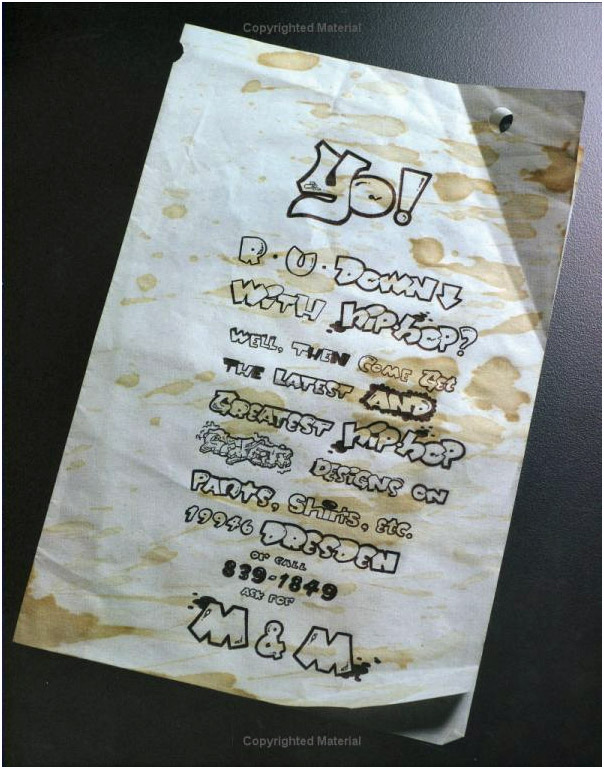 Copyrighted Material
Yo!
R·U·DOWN
WITH HIP-HOP?
WELL, THEN COME GET
THE LATEST AND
GREATEST HIP-HOP
DESIGNS ON
PANTS, SHIRTS, ETC.
19946 DRESDEN
OR CALL
839-1849
ASK FOR
M & M
Copyrighted Material